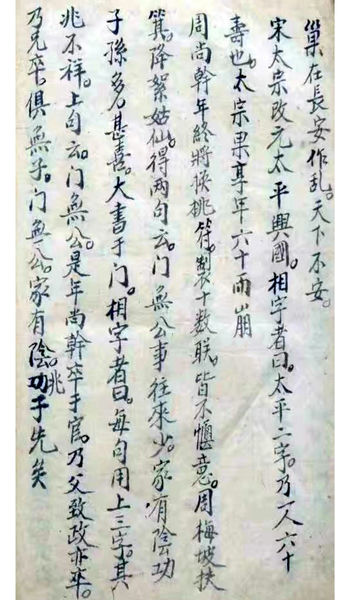 巢在長安作乱。天下不安。
宋太宗改元太平興國。相字者曰。太平二字。乃一人六十
壽也。太宗果享年六十而崩
周尚幹年終將換桃符。製十数联。皆不愜意。周梅坡扶
箕。降絮姑仙。得两句云。门無公事往來少。家有陰功
子孫多。名甚喜。大書于门。相字者曰。每句用上三字。其
兆不祥。上句云。门無公。是年尚幹卒于官。乃父致政亦卒。
乃兄卒。俱無子。门無公。家有陰功兆子先矣